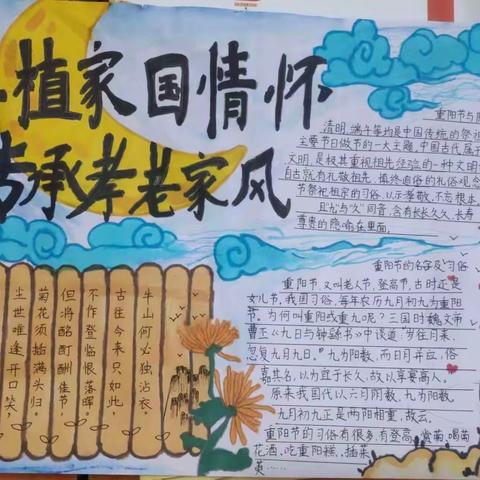 植家国情怀
承孝老家风
重阳节与
清明、端午等均是中国传统的祭祖
主要节日做节的一大主题。中国古代属
文明,是极其重视祖先经验的一种文明
自古就有礼敬祖先、慎终追远的礼俗观念
节祭祀祖宗的习俗,以示孝敬、不忘根本。
且"九"与"久"同音,含有长长久久、长寿
尊贵的隐喻在里面。
重阳节的名字及习俗
重阳节,又叫老人节、登高节,古时正是
女儿节,我国习俗,每年农历九月初九为重阳
节。为何叫重阳或重九呢?三国时魏文帝
曹丕《九日与钟繇书》中谈道:岁往月来,
忽复九月九日。"九为阳数,而日月并应,俗
嘉其名,以为宜于长久,故以享宴高人。
原来我国代以六日阴数,九为阳数
九月初九正是两阳相重,故云。
重阳节的习俗有很多,有登高、赏菊、喝菊
花酒、吃重阳糕、插茱
萸……
牛山何必独沾衣。
古往今来只如此
不作登临恨落晖。
但将酩酊酬佳节
菊花须插满头归。
尘世唯逢开口笑,